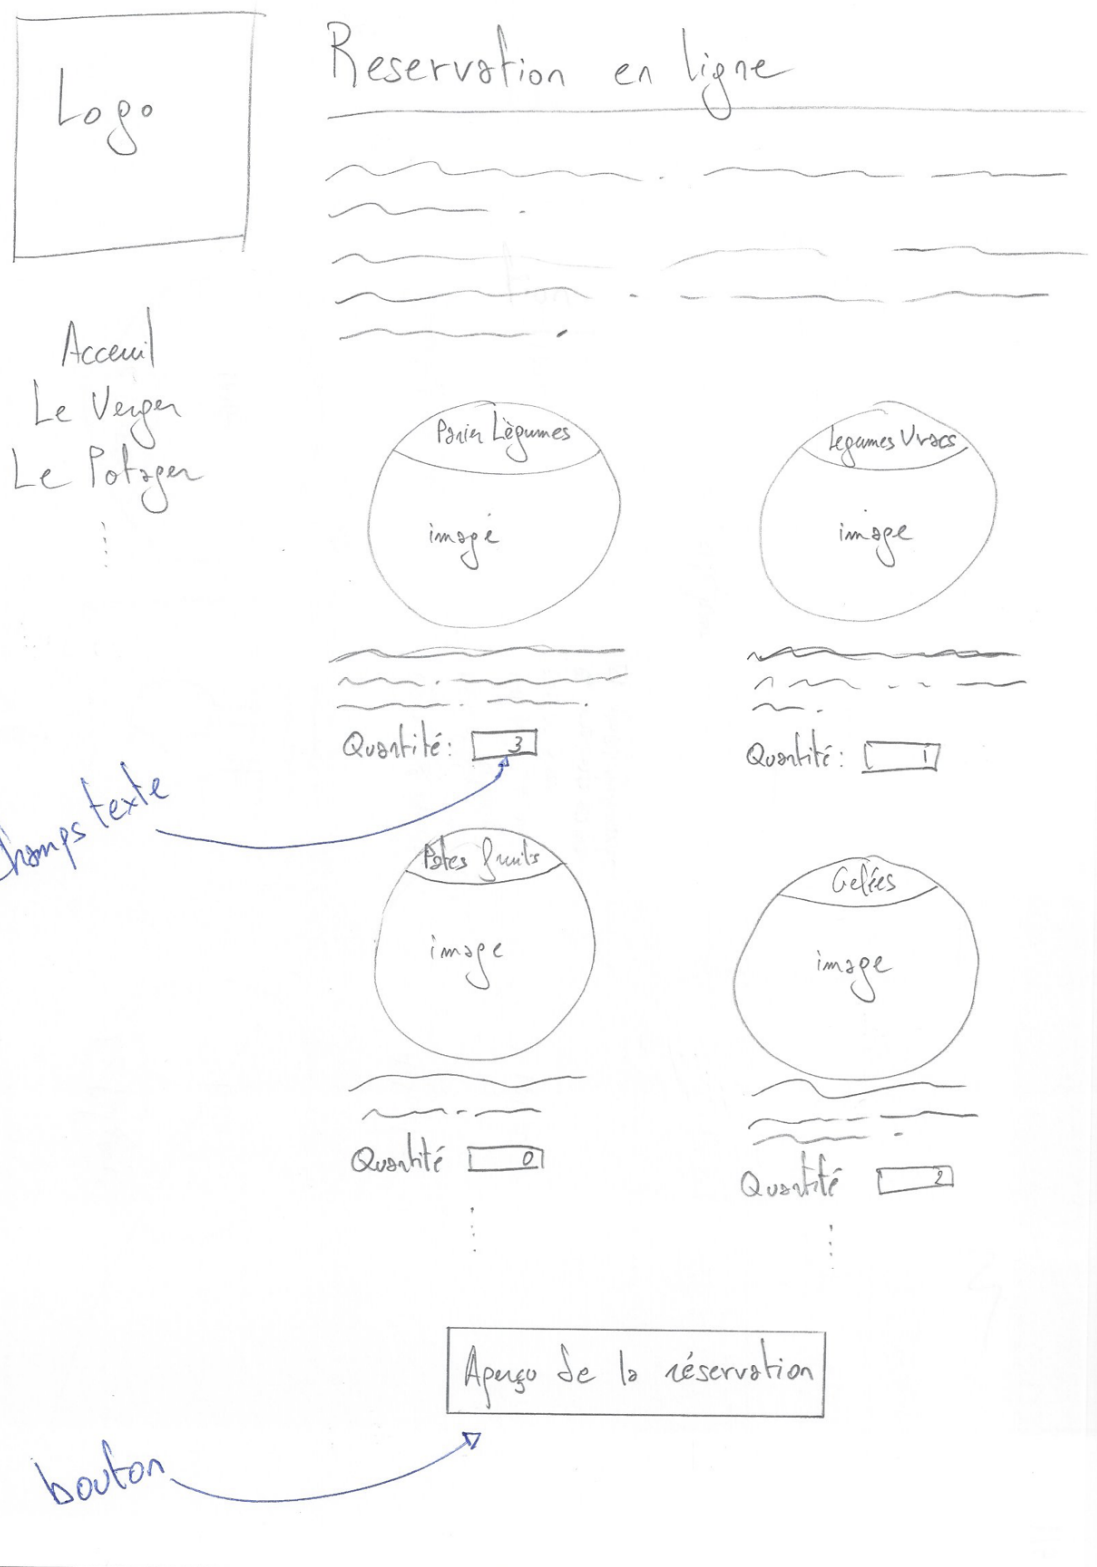 Logo
Reservation en ligne
Acceuil
Le Verger
Le Potager
Panier Lègumes
image
Legumes Vracs
image
Quantité: 3
Quantité: 1
Champs texte
Pates fruits
image
Gelées
image
Quantité 0
Quantité 2
Aperçu de la réservation
bouton